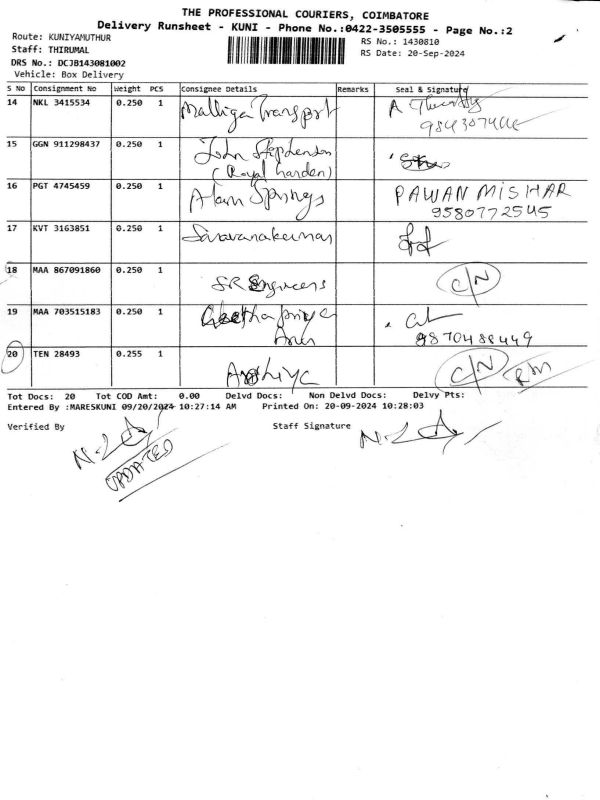 THE PROFESSIONAL COURIERS, COIMBATORE
Delivery Runsheet - KUNI - Phone No.:0422-3505555 - Page No.:2
Route: KUNIYAMUTHUR
RS No.: 1430810
Staff: THIRUMAL
RS Date: 20-Sep-2024
DRS No.: DCJB143081002
Vehicle: Box Delivery
S No Consignment No Weight PCS Consignee Details Remarks Seal & Signature
14 NKL 3415534 0.250 1 Malliga Transport
15 GGN 911298437 0.250 1 John Stephenson
(Royal
16 PGT 4745459 0.250 1 Springs PAWAN MISHAR
9580772545
17 KVT 3163851 0.250 1 Saravanakumar
18 MAA 867091860 0.250 1 SR Engineers C/N
19 MAA 703515183 0.250 1 Geethapriya
9870488449
20 TEN 28493 0.255 1 C/N RM
Tot Docs: 20 Tot COD Amt: 0.00 Delvd Docs: Non Delvd Docs: Delvy Pts:
Entered By :MARESKUNI 09/20/2024 10:27:14 AM Printed On: 20-09-2024 10:28:03
Verified By Staff Signature
UPDATED